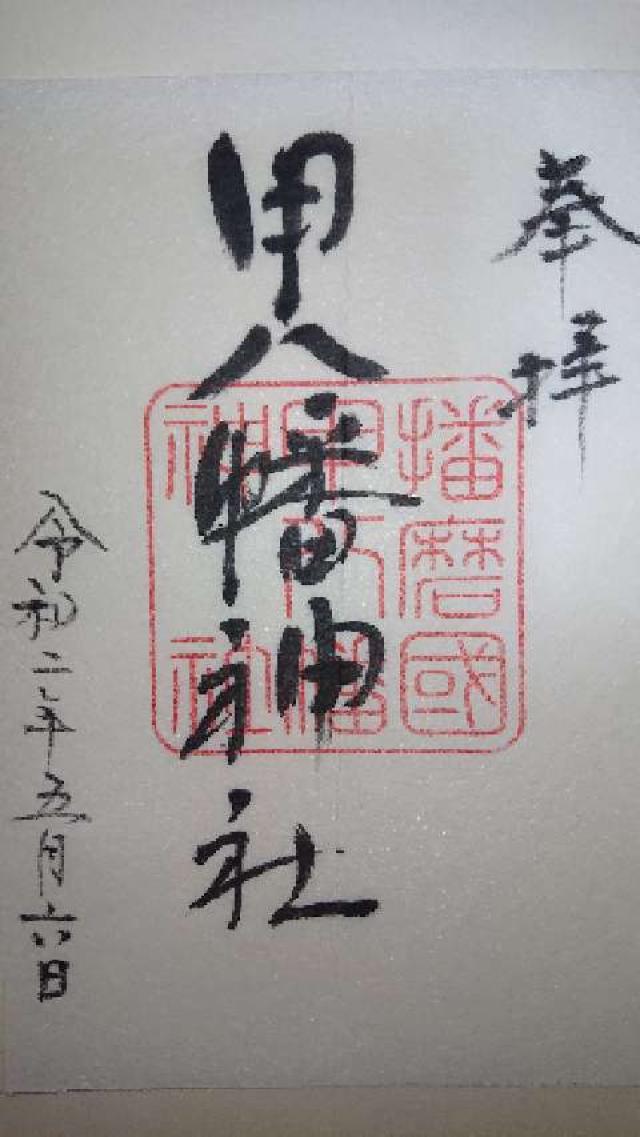 奉拝
甲八幡神社
播磨國
甲八幡
神社
令和二年五月六日